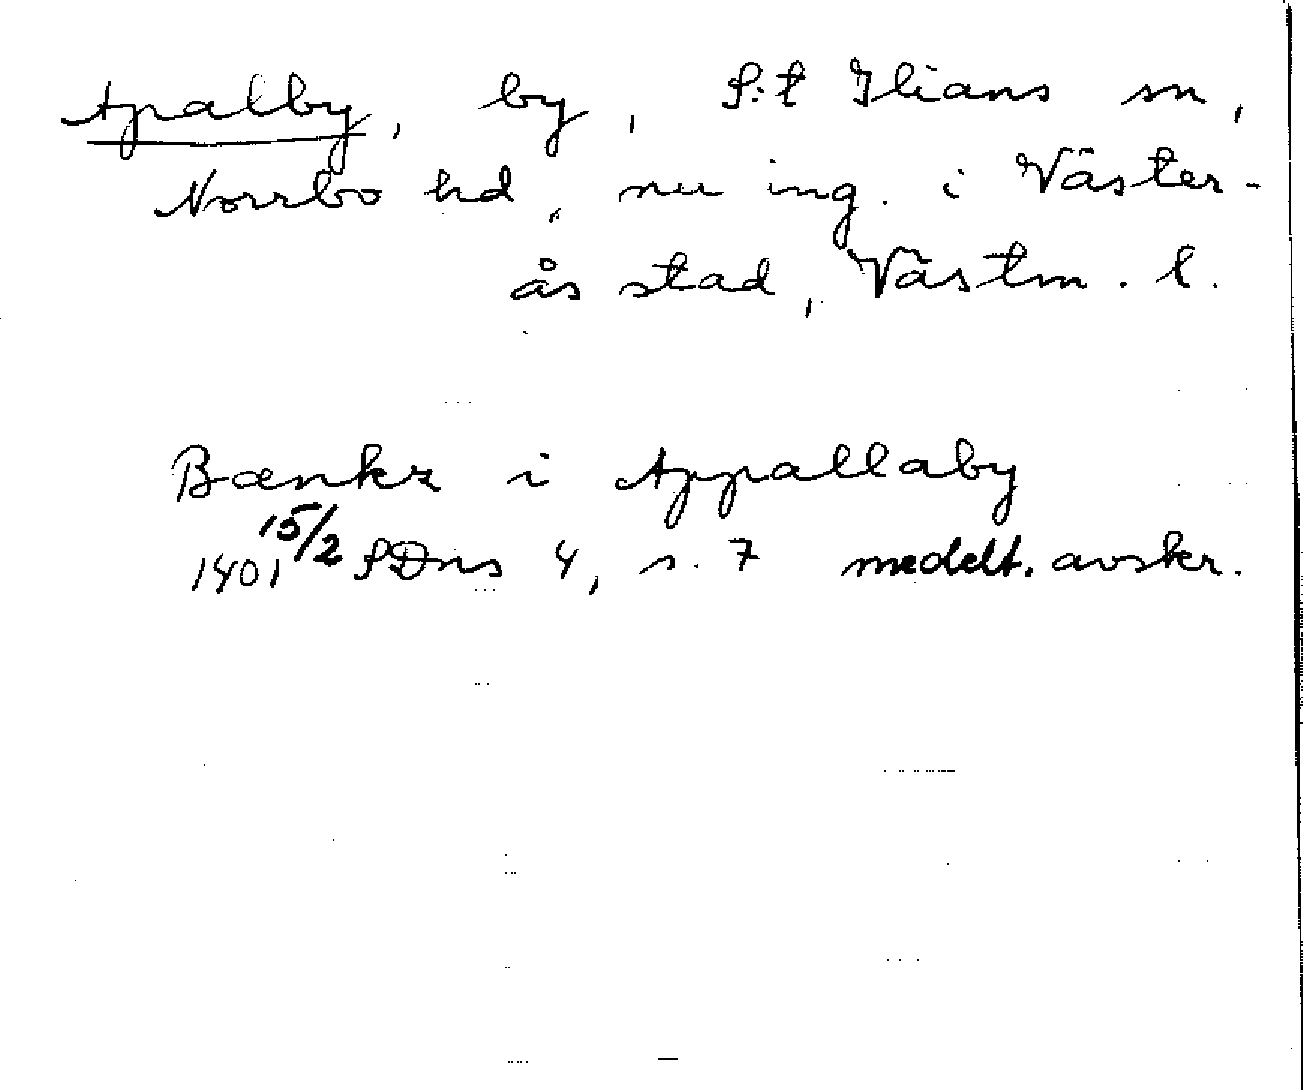 Apalby, by, S:t Ilians sn,
Norrbo hd, nu ing. i Väster-
ås stad, Västm. l.
Bænkz i Appallaby
1401 15/2 SDns 4, s. 7 medelt. avskr.